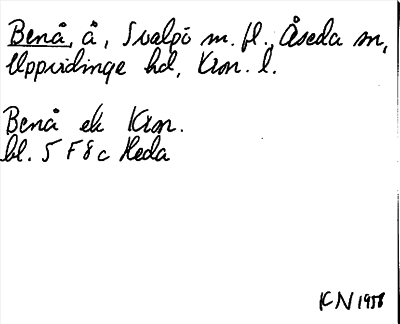 Benå, å, Svalpö m. fl., Åseda sn,
Uppvidinge hd, Kron. l.
Benå ek Kron.
bl. 5 F 8 c Heda
KN 1958